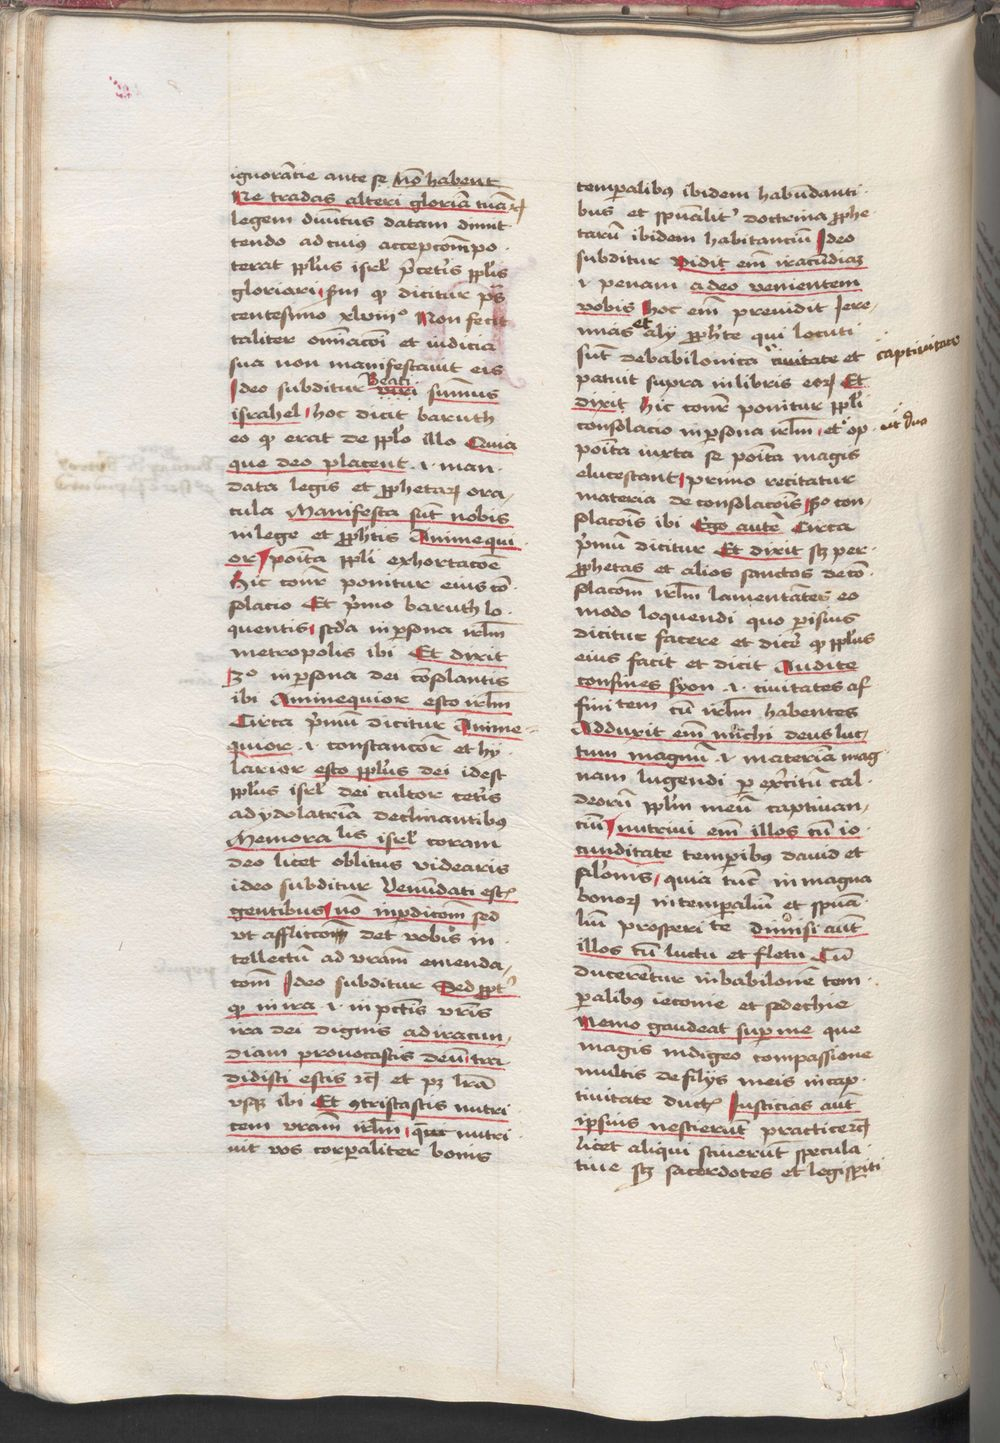 ignorātie ante se nō habent
Ne tradas alteri gloriā tuā ⁊c̄
legem diuītus datam dimit
tendo ad cuiꝰ accepcōm po
terat ppl̄us isrl̄ p̄ cet̄is ppl̄is
gloriari sm̄ qd̓ dicitur ps̄
centesimo xlviiᵒ Non fecit
taliter om̄i nacōi et iudicia
sua non manifestauit eis
Ideo subditur Beati
viri sumus
israhel hoc dicit baruth
eo qd̓ erat de ppl̄o illo Quia
que deo placent .i. man
data legis et ꝓphetaꝝ ora
cula Manifesta sūt nobis
in lege et ꝓph̄tis Animequi
or poīta ppl̄i exhortacōe
hic cōnr̄ ponitur eius cō
solacio Et p̄mo baruth lo
quentis scd̄a in ꝑsona irl̄m
metropolis ibi Et dixit
3ᵒ in ꝑsona dei cōsolantis
ibi Animequior esto irl̄m
Circa p̄mū dicitur Anime
quior .i. constancior̄ et hy
larior esto ppl̄us dei idest
ppl̄us isrl̄ dei cultor cet̄is
ad ydolatriā declinantibꝰ
Memoralis isrl̄ coram
deo licet oblitus videaris
ideo subditur Venūdati estꝭ
gentibus nō in ꝑdicōm sed
vt afflictōm det vobis in
tellectū ad vr̄am emenda
cōm Ideo subditur Sed ꝓpt̓
qd̓ in ira .i. in pctīs vr̄is
ira dei dignis ad iracun
diam prouocastis deū tra
didisti estis ⁊c̄ et pꝫ lr̄a
vsqꝫ ibi Et ꝯtristastis nutri
cem vr̄am irl̄m que nutri
uit vos corꝑaliter bonis
temꝑalibꝰ ibidem habundanti
bus et spūalit̓ doctrina ꝓphe
tarū ibidem habitanciū Ideo
subditur Vidit em̄ iracūdiaꝫ
.i. penam a deo venientem
vobis hoc em̄ preuidit Jere
mias et alij ꝓph̄te qui locuti
sūt de babilonica ciuitate et
captiuitate
patuit supra in libris eoꝝ Et
dixit hic cōnr̄ ponitur ppl̄i
consolacio in ꝑsona irl̄m et op
poīta iuxta se poīta magis
elucestant primo recitatur
materia de consolacōis 2ᵒ con
solacōis ibi Ego autē Circa
p̄mū dicitur Et dixit sꝫ per
ꝓphetas et alios sanctos de cō
solacōm irl̄m lamentātes eo
modo loquendi quo ꝑisius
dicitur facere et dic̄e qd̓ ppl̄us
eius facit et dicit Audite
confines syon .i. ciuitates af
finitem cū irl̄m habentes
Adduxit em̄ michi deus luc
tum magnū .i. materiā mag
nam lugendi ꝑ ex̄citū cal
deorū ppl̄m meū captiuan
ciū nutriui em̄ illos cū io
cunditate temꝑibꝰ dauid et
salōnis quia tūc in magna
bonoꝝ in temꝑaliū et spūa
liū prosperite dimisi aūt
illos cū luctu et fletu Cū
ducerētur in babilonē tem
ꝑalibus ieconie et sedechie
Nemo gaudeat suꝑ me que
magis indigeo compassione
multis de filijs meis in cap
tiuitate ductꝭ Iusticias aūt
ipsius nescierūt practice ⁊c̄
licet aliqui sciuerūt specula
tiue sꝫ sacerdotes et legisperiti